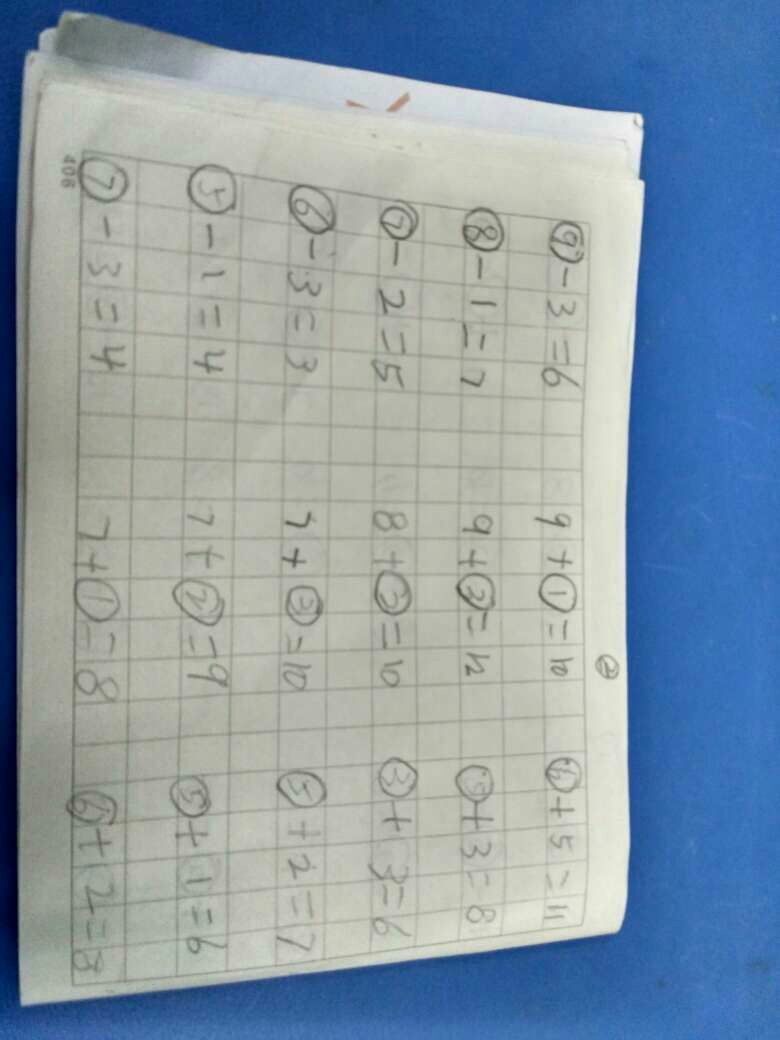 ②
⑨-3=6 9+①=10 ⑥+5=11
⑧-1=7 9+③=12 ⑤+3=8
⑦-2=5 8+②=10 ③+3=6
⑥-3=3 7+③=10 ⑤+2=7
⑤-1=4 7+②=9 ⑤+1=6
⑦-3=4 7+①=8 ⑥+2=8
406